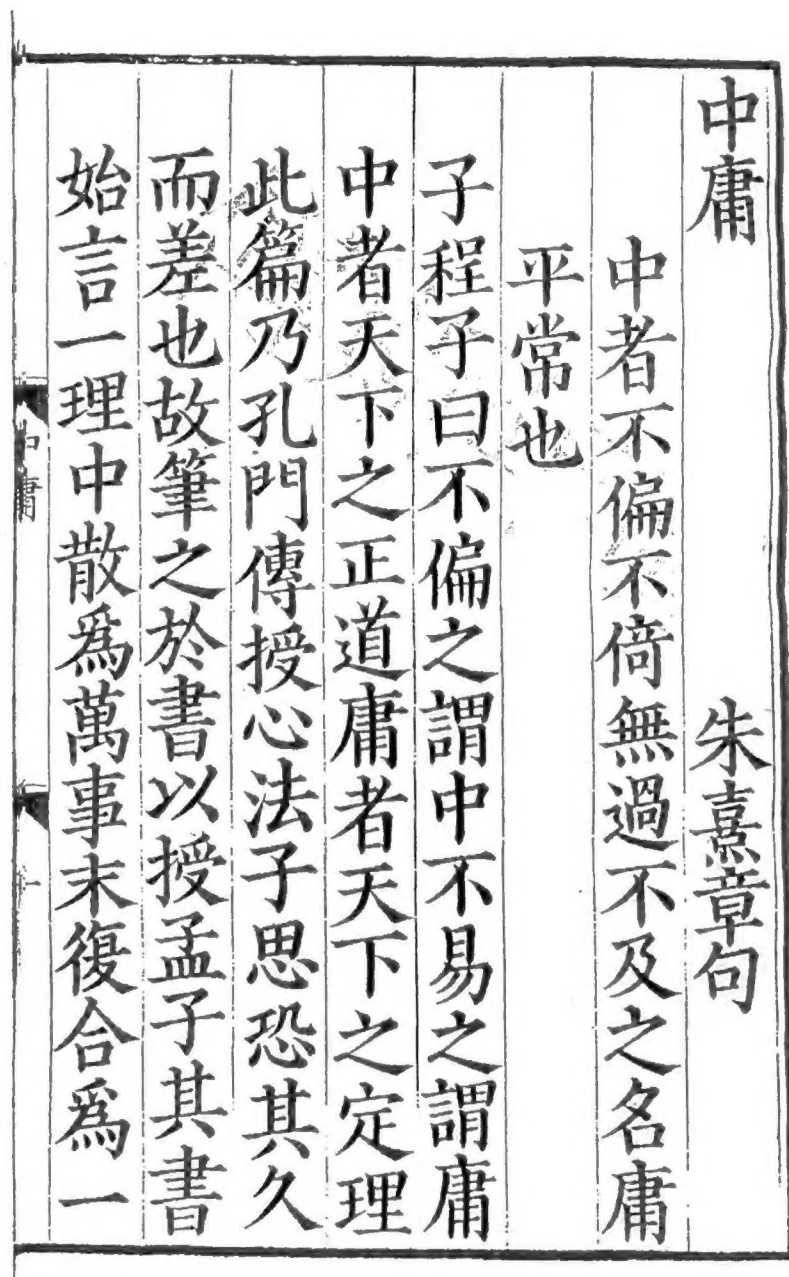 中庸 朱熹章句
中者不偏不倚無過不及之名庸
平常也
子程子曰不偏之謂中不易之謂庸
中者天下之正道庸者天下之定理
此篇乃孔門傳授心法子思恐其久
而差也故筆之於書以授孟子其書
始言一理中散爲萬事末復合爲一
中庸
一